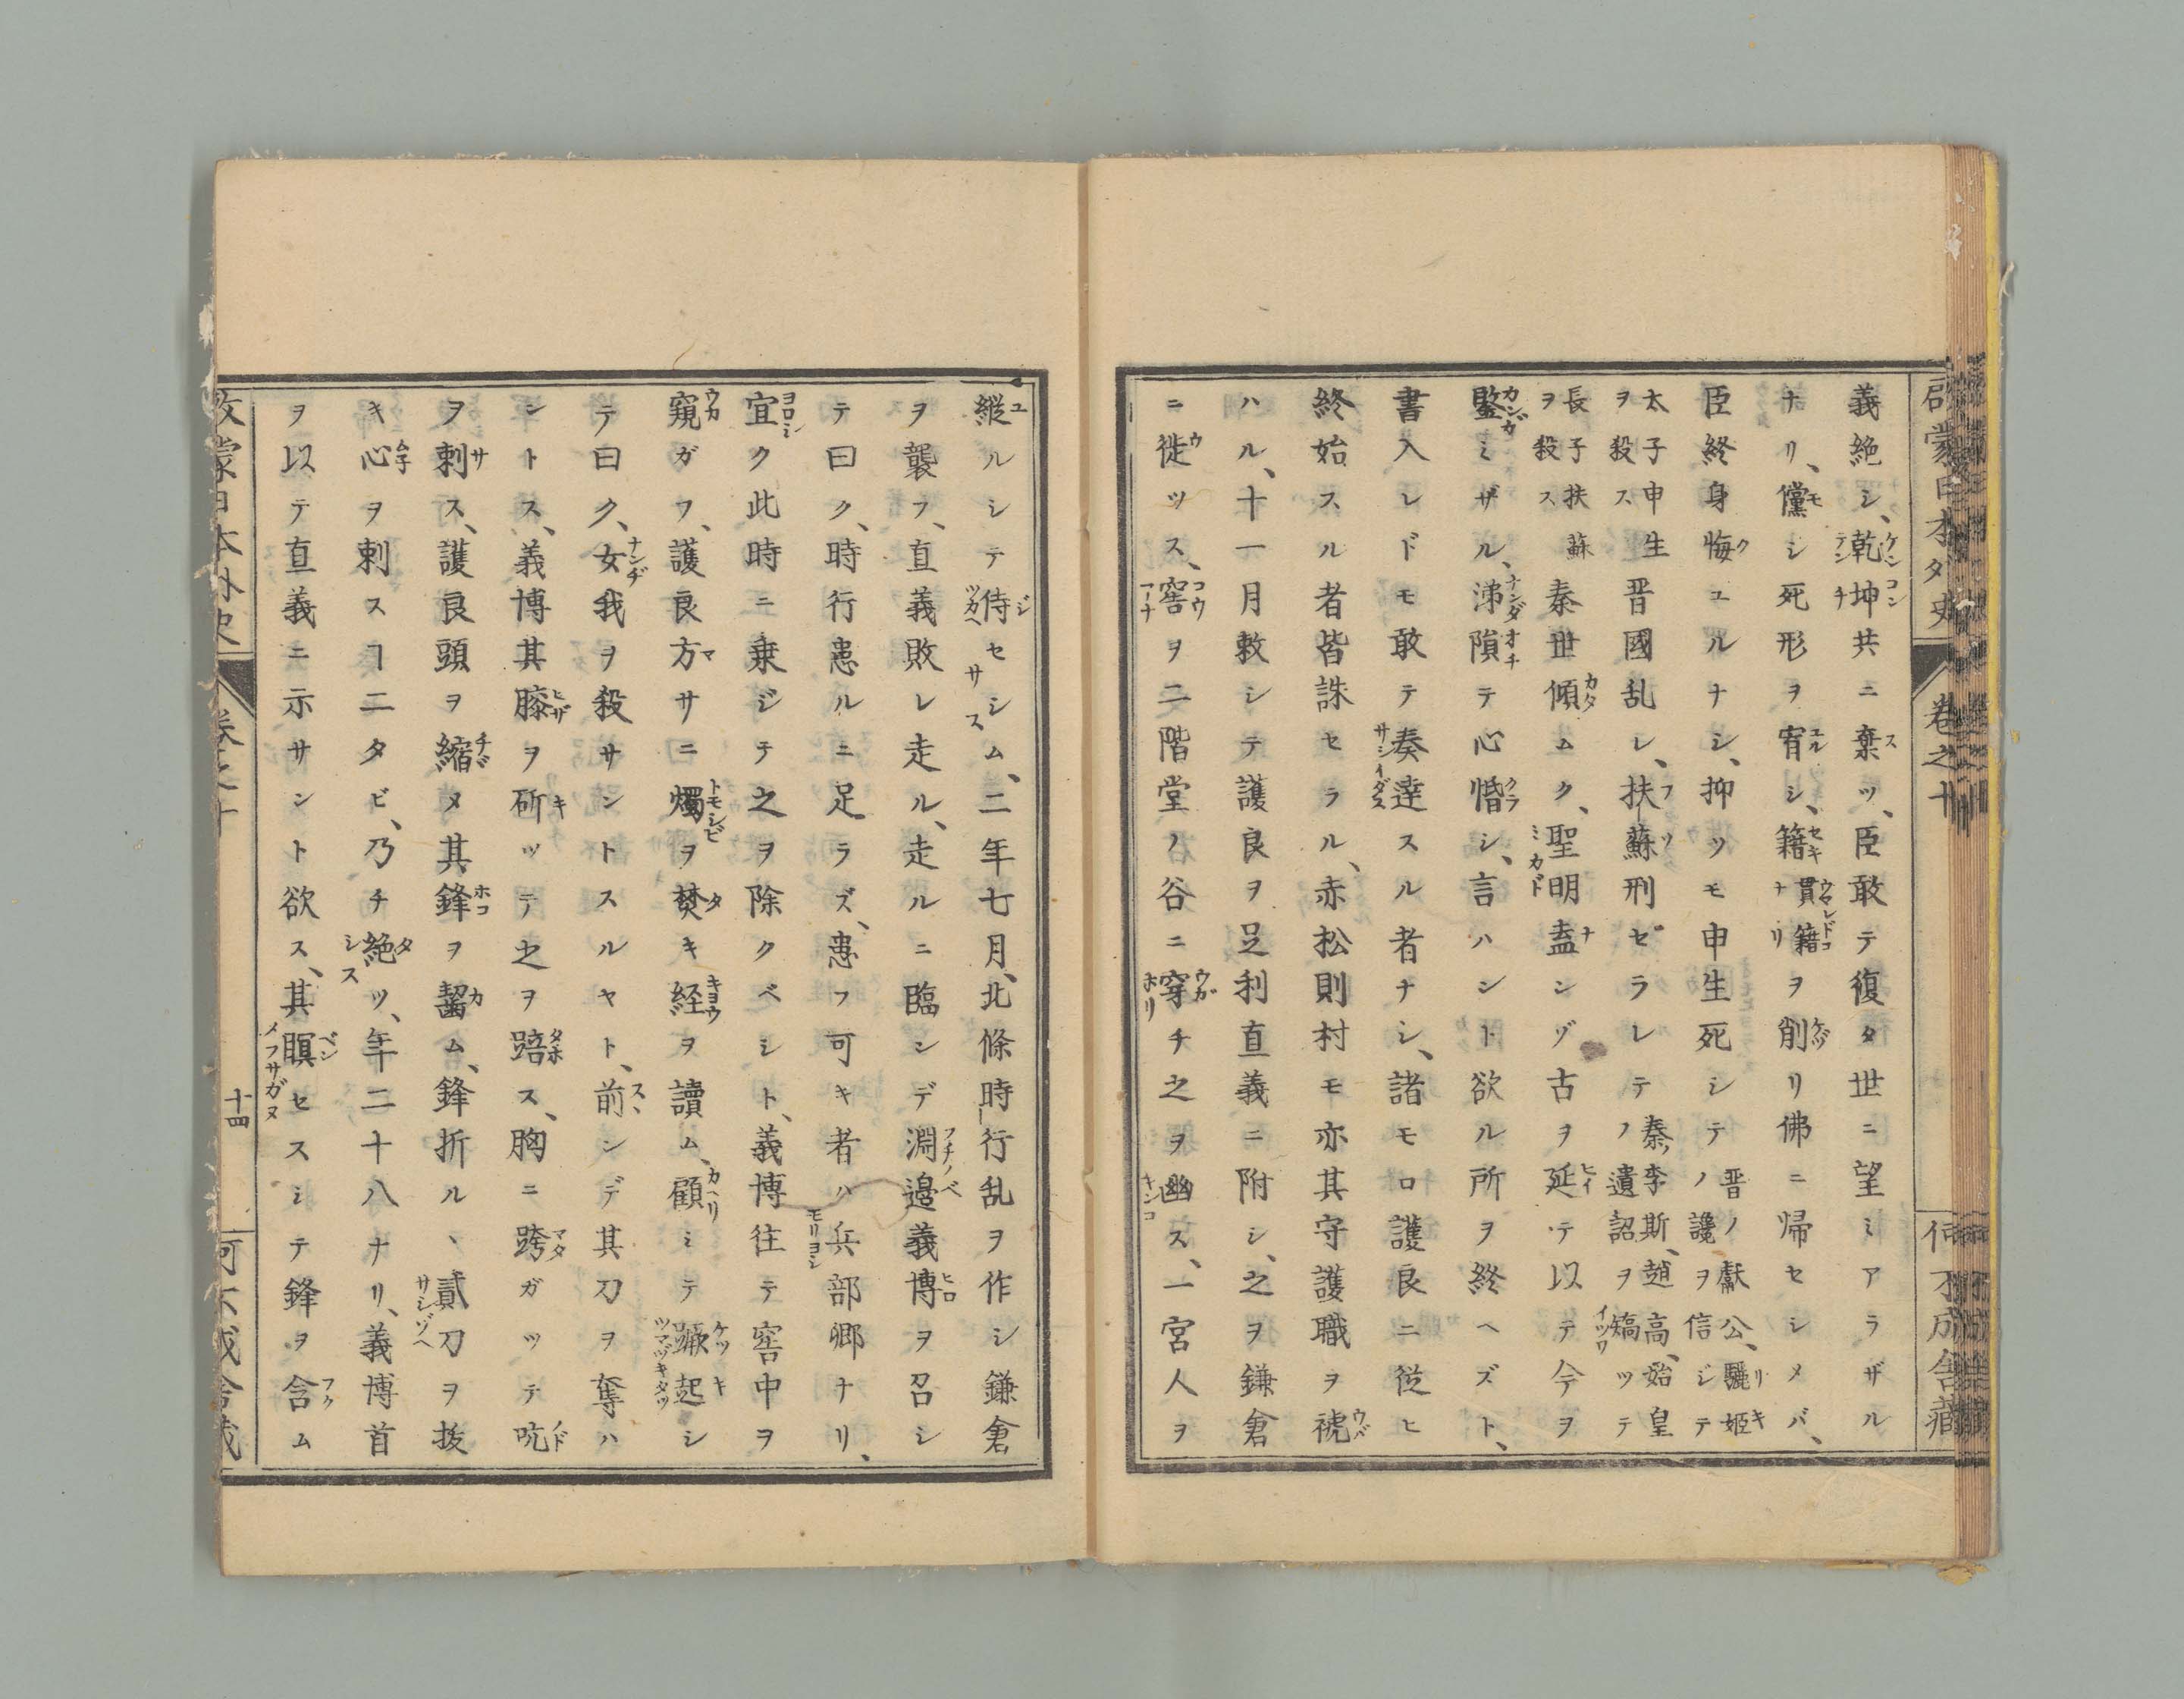 義絶シ、乾坤共ニ棄ツ、臣敢テ復タ世ニ望ミアラザル
ナリ、儻シ死形ヲ宥シ、籍貫籍ナリヲ削リ佛ニ帰セシメバ、
臣終身悔ユルナシ、抑ツモ申生死シテ晋ノ獻公、驪姫ノ讒ヲ信シテ
太子申生ヲ殺ス晋國乱レ、扶蘇刑ゼラレテ秦ノ李斯、趙高、始皇ノ遺詔ヲ矯ツテ
長子扶蘇ヲ殺ス秦世傾ムク、聖明盍ンゾ古ヲ延テ以テ今ヲ
鑒ミザル、涕隕テ心惛シ、言ハント欲ル所ヲ終ヘズト、
書入レドモ敢テ奏達スル者ナシ、諸モロ護良ニ從ヒ
終始スル者皆誅セラル、赤松則村モ亦其守護職ヲ褫
ハル、十一月敕シテ護良ヲ足利直義ニ附シ、之ヲ鎌倉
ニ徙ツス、窖ヲ二階堂ノ谷ニ穿チ之ヲ幽ス、一宮人ヲ
縱ルシテ侍セシム、二年七月、北條時行乱ヲ作シ鎌倉
ヲ襲フ、直義敗レ走ル、走ルニ臨ンデ淵邉義博ヲ召シ
テ曰ク、時行患ルニ足ラズ、患フ可キ者ハ兵部郷ナリ、
宜ク此時ニ乗ジテ之ヲ除クベシト、義博往テ窖中ヲ
窺ガフ、護良方サニ燭ヲ焚キ経ヲ讀ム、顧ミテ蹶起シ
テ曰ク、女我ヲ殺サントスルヤト、前ンデ其刀ヲ奪ハ
ントス、義博其膝ヲ斫ツテ之ヲ踣ス、胸ニ跨ガツテ吭
ヲ刺ス、護良頭ヲ縮メ其鋒ヲ齧ム、鋒折ル、貳刀ヲ抜
キ心ヲ刺スヿ二タビ、乃チ絶ツ、年二十八ナリ、義博首
ヲ以テ直義ニ示サント欲ス、其瞑セスシテ鋒ヲ含ム
十四